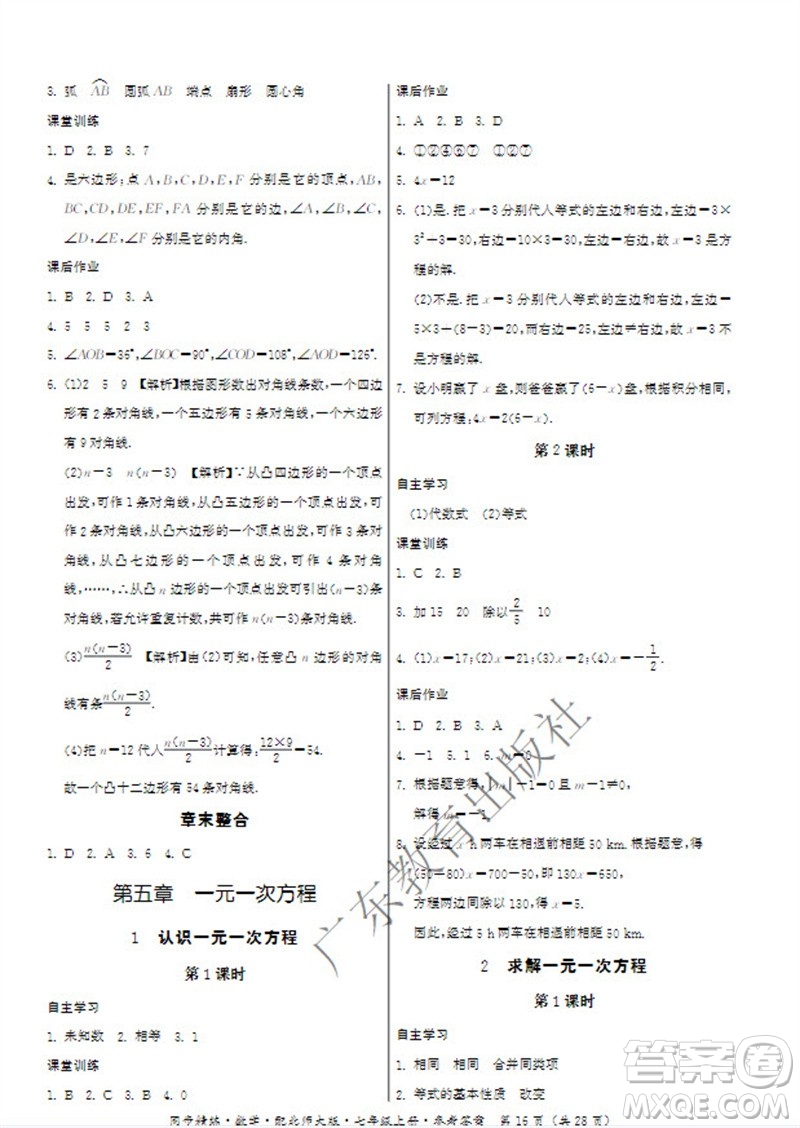 3. 弧 AB 圆弧 AB 端点 扇形 圆心角
课堂训练
1. D 2. B 3. 7
4. 是六边形;点 A,B,C,D,E,F 分别是它的顶点,AB,
BC,CD,DE,EF,FA 分别是它的边,∠A,∠B,∠C,
∠D,∠E,∠F 分别是它的内角.
课后作业
1. B 2. D 3. A
4. 5 5 5 2 3
5. ∠AOB=36°,∠BOC=90°,∠COD=108°,∠AOD=126°.
6. (1)2 5 9 【解析】根据图形数出对角线条数,一个四边
形有 2 条对角线,一个五边形有 5 条对角线,一个六边形
有 9 对角线.
(2)n-3 n(n-3) 【解析】∵从凸四边形的一个顶点
出发,可作 1 条对角线,从凸五边形的一个顶点出发,可
作 2 条对角线,从凸六边形的一个顶点出发,可作 3 条对
角线,从凸七边形的一个顶点出发,可作 4 条对角
线,……,∴从凸 n 边形的一个顶点出发可引出(n-3)条
对角线,若允许重复计数,共可作 n(n-3)条对角线.
(3)n(n-3)/2 【解析】由(2)可知,任意凸 n 边形的对角
线有条n(n-3)/2.
(4)把 n=12 代人n(n-3)/2计算得:12×9/2=54.
故一个凸十二边形有 54 条对角线.
章末整合
1. D 2. A 3. 6 4. C
第五章 一元一次方程
1 认识一元一次方程
第 1 课时
自主学习
1. 未知数 2. 相等 3. 1
课堂训练
1. B 2. C 3. B 4. 0
课后作业
1. A 2. B 3. D
4. ①②④⑥⑦ ①②⑥⑦
5. 4x=12
6. (1)是.把 x=3 分别代人等式的左边和右边,左边=3×
3²+3=30,右边=10×3=30,左边=右边,故 x=3 是方
程的解.
(2)不是.把 x=3 分别代人等式的左边和右边,左边=
5×3-(3-8)=20,而右边=10,左边≠右边,故 x=3 不
是方程的解.
7. 设小明赢了 x 盘,则爸爸赢了(6-x)盘,根据积分相同,
可列方程:4x=2(6-x).
第 2 课时
自主学习
(1)代数式 (2)等式
课堂训练
1. C 2. B
3. 加 15 20 除以2/5 10
4. (1)x=17;(2)x=21;(3)x=2;(4)x=-1/2.
课后作业
1. D 2. B 3. A
4. -1 5. 1 6. m=0
7. 根据题意得,|m|-1=0 且 m-1≠0,
解得 m=-1.
8. 设经过 x h 两车在相遇前相距 50 km.根据题意,得
(50+80)x=700-50,即 130x=650,
方程两边同除以 130,得 x=5.
因此,经过 5 h 两车在相遇前相距 50 km.
2 求解一元一次方程
第 1 课时
自主学习
1. 相同 相同 合并同类项
2. 等式的基本性质 改变
同步精练·数学·配北师大版·七年级上册·参考答案 第 16 页 (共 28 页)
广东教育出版社
答案圈
MXQE.COM